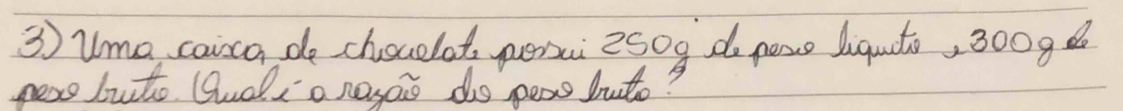 3) Uma caixa de chocolate possui 250g de peso liquido, 300g de
peso bruto. Qual é a razão do peso bruto?